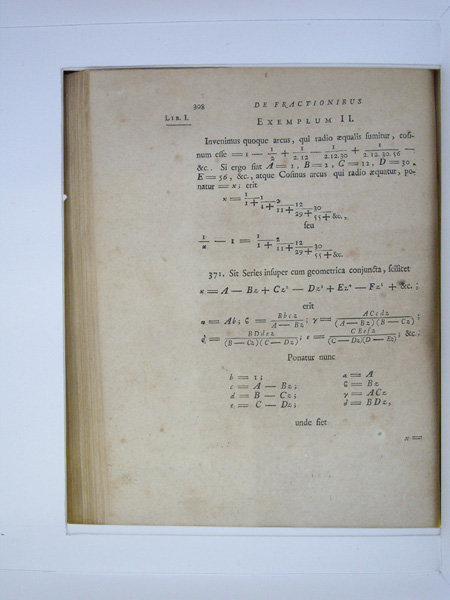 308 DE FRACTIONIBUS
LIB. I.
EXEMPLUM II.
Invenimus quoque arcus, qui radio æqualis sumitur, cosi-
num esse = 1 — 1/2 + 1/2.12 — 1/2.12.30 + 1/2.12.30.56 —
&c. Si ergo fiat A = 1, B = 2, C = 12, D = 30,
E = 56, &c., atque Cosinus arcus qui radio æquatur, po-
natur = x; erit
x = 1/1 + 1/1 + 2/11 + 12/29 + 30/55 + &c.,
seu
1/x — 1 = 1/1 + 2/11 + 12/29 + 30/55 + &c.
371. Sit Series insuper cum geometrica conjuncta, scilicet
x = A — Bz + Cz² — Dz³ + Ez⁴ — Fz⁵ + &c.;
erit
α = Ab; ϐ = Bbcz/A — Bz; γ = ACcdz/(A — Bz)(B — Cz);
δ = BDdez/(B — Cz)(C — Dz); ε = CEefz/(C — Dz)(D — Ez); &c.
Ponatur nunc
b = 1; α = A
c = A — Bz; ϐ = Bz
d = B — Cz; γ = ACz
e = C — Dz; δ = BDz,
unde fiet
x =